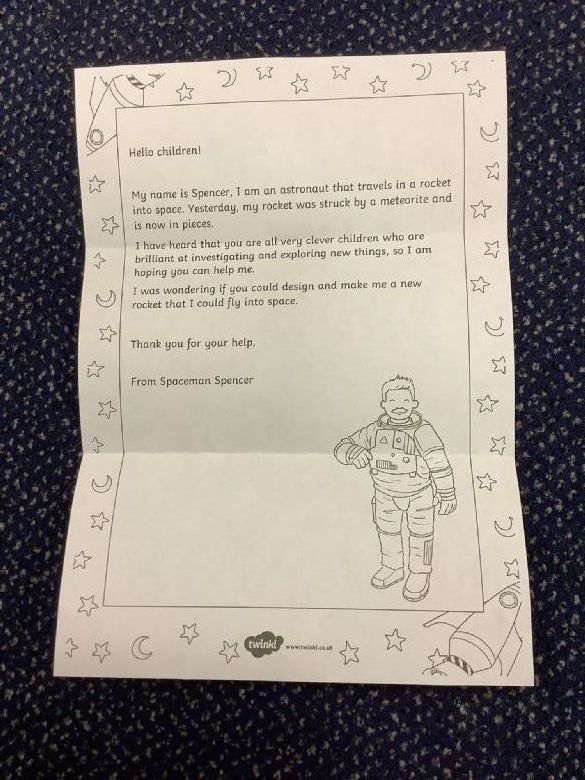 Hello children!
My name is Spencer, I am an astronaut that travels in a rocket
into space. Yesterday, my rocket was struck by a meteorite and
is now in pieces.
I have heard that you are all very clever children who are
brilliant at investigating and exploring new things, so I am
hoping you can help me.
I was wondering if you could design and make me a new
rocket that I could fly into space.
Thank you for your help,
From Spaceman Spencer
twinkl www.twinkl.co.uk